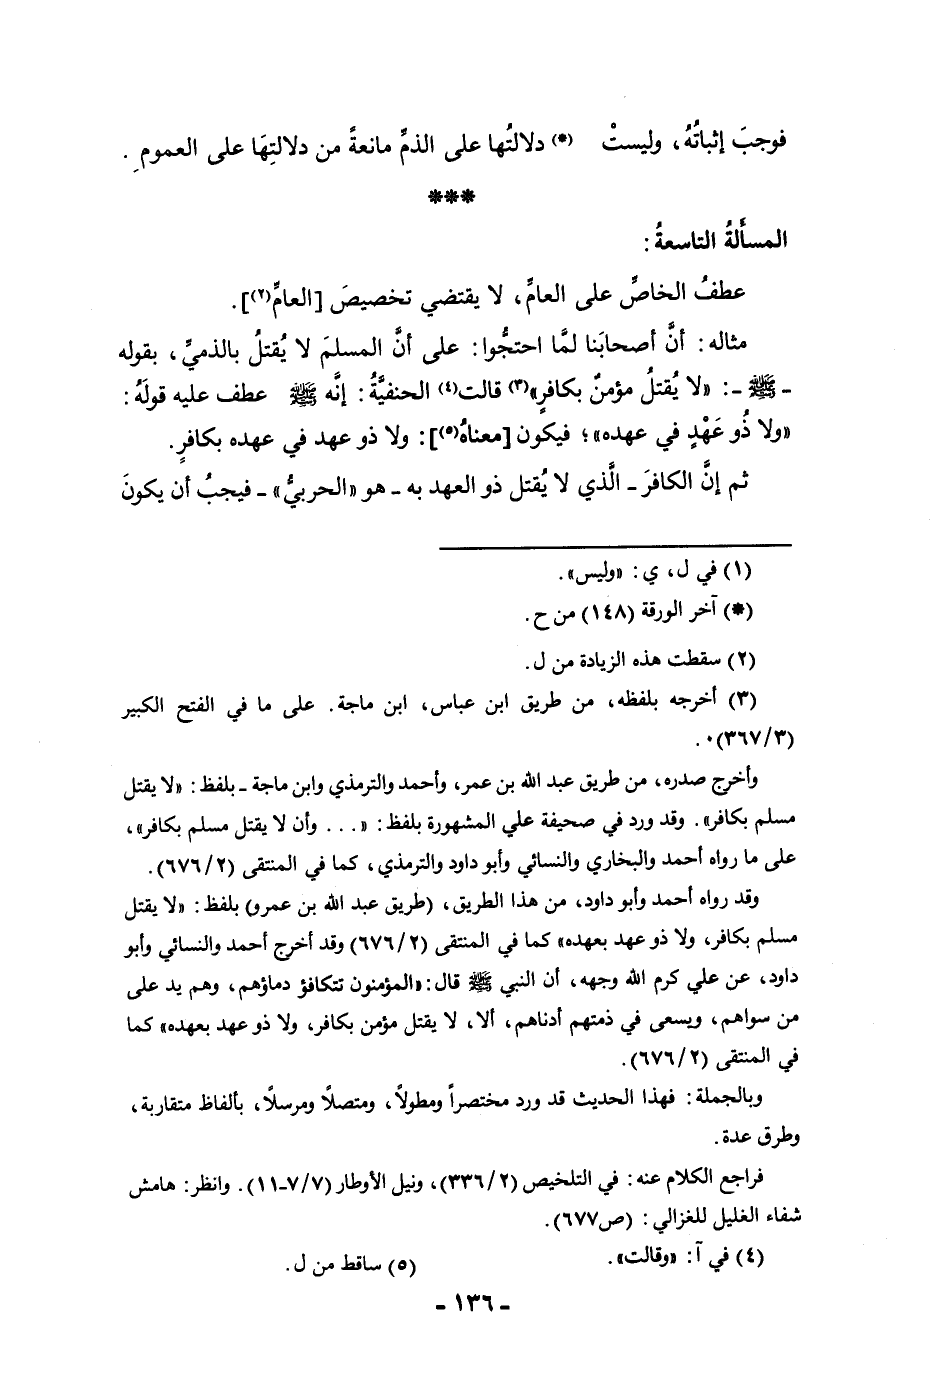 فوجبَ إثباتُهُ، وليستْ (*) دلالتُها على الذمِّ مانعةً من دلالتِهَا على العمومِ .
***
المسألةُ التاسعةُ :
عطفُ الخاصِّ على العامِّ، لا يقتضي تخصيصَ [العامِّ(٢)].
مثاله: أنَّ أصحابَنا لمَّا احتجُّوا: على أنَّ المسلمَ لا يُقتلُ بالذميِّ، بقوله
ـ ﷺ ـ: «لا يُقتلُ مؤمنٌ بكافرٍ»(٣) قالت(٤) الحنفيَّةُ: إنَّه ﷺ عطف عليه قولَهُ:
«ولا ذُو عَهْدٍ في عهده»؛ فيكون [معناهُ(٥)]: ولا ذو عهد في عهده بكافرٍ.
ثم إنَّ الكافرَ ـ الَّذي لا يُقتل ذو العهد به ـ هو «الحربيُّ» ـ فيجبُ أن يكونَ
(١) في ل، ي: «وليس».
(*) آخر الورقة (١٤٨) من ح.
(٢) سقطت هذه الزيادة من ل.
(٣) أخرجه بلفظه، من طريق ابن عباس، ابن ماجة. على ما في الفتح الكبير
(٣٦٧/٣)٠.
وأخرج صدره، من طريق عبد الله بن عمر، وأحمد والترمذي وابن ماجة ـ بلفظ: «لا يقتل
مسلم بكافر». وقد ورد في صحيفة علي المشهورة بلفظ: «... وأن لا يقتل مسلم بكافر»،
على ما رواه أحمد والبخاري والنسائي وأبو داود والترمذي، كما في المنتقى (٦٧٦/٢).
وقد رواه أحمد وأبو داود، من هذا الطريق، (طريق عبد الله بن عمرو) بلفظ: «لا يقتل
مسلم بكافر، ولا ذو عهد بعهده» كما في المنتقى (٦٧٦/٢) وقد أخرج أحمد والنسائي وأبو
داود، عن علي كرم الله وجهه، أن النبي ﷺ قال: «المؤمنون تتكافؤ دماؤهم، وهم يد على
من سواهم، ويسعى في ذمتهم أدناهم، ألا، لا يقتل مؤمن بكافر، ولا ذو عهد بعهده» كما
في المنتقى (٦٧٦/٢).
وبالجملة: فهذا الحديث قد ورد مختصراً ومطولاً، ومتصلًا ومرسلًا، بألفاظ متقاربة،
وطرق عدة.
فراجع الكلام عنه: في التلخيص (٣٣٦/٢)، ونيل الأوطار (٧/٧ـ١١). وانظر: هامش
شفاء الغليل للغزالي: (ص٦٧٧).
(٤) في آ: «وقالت». (٥) ساقط من ل.
ـ ١٣٦ ـ